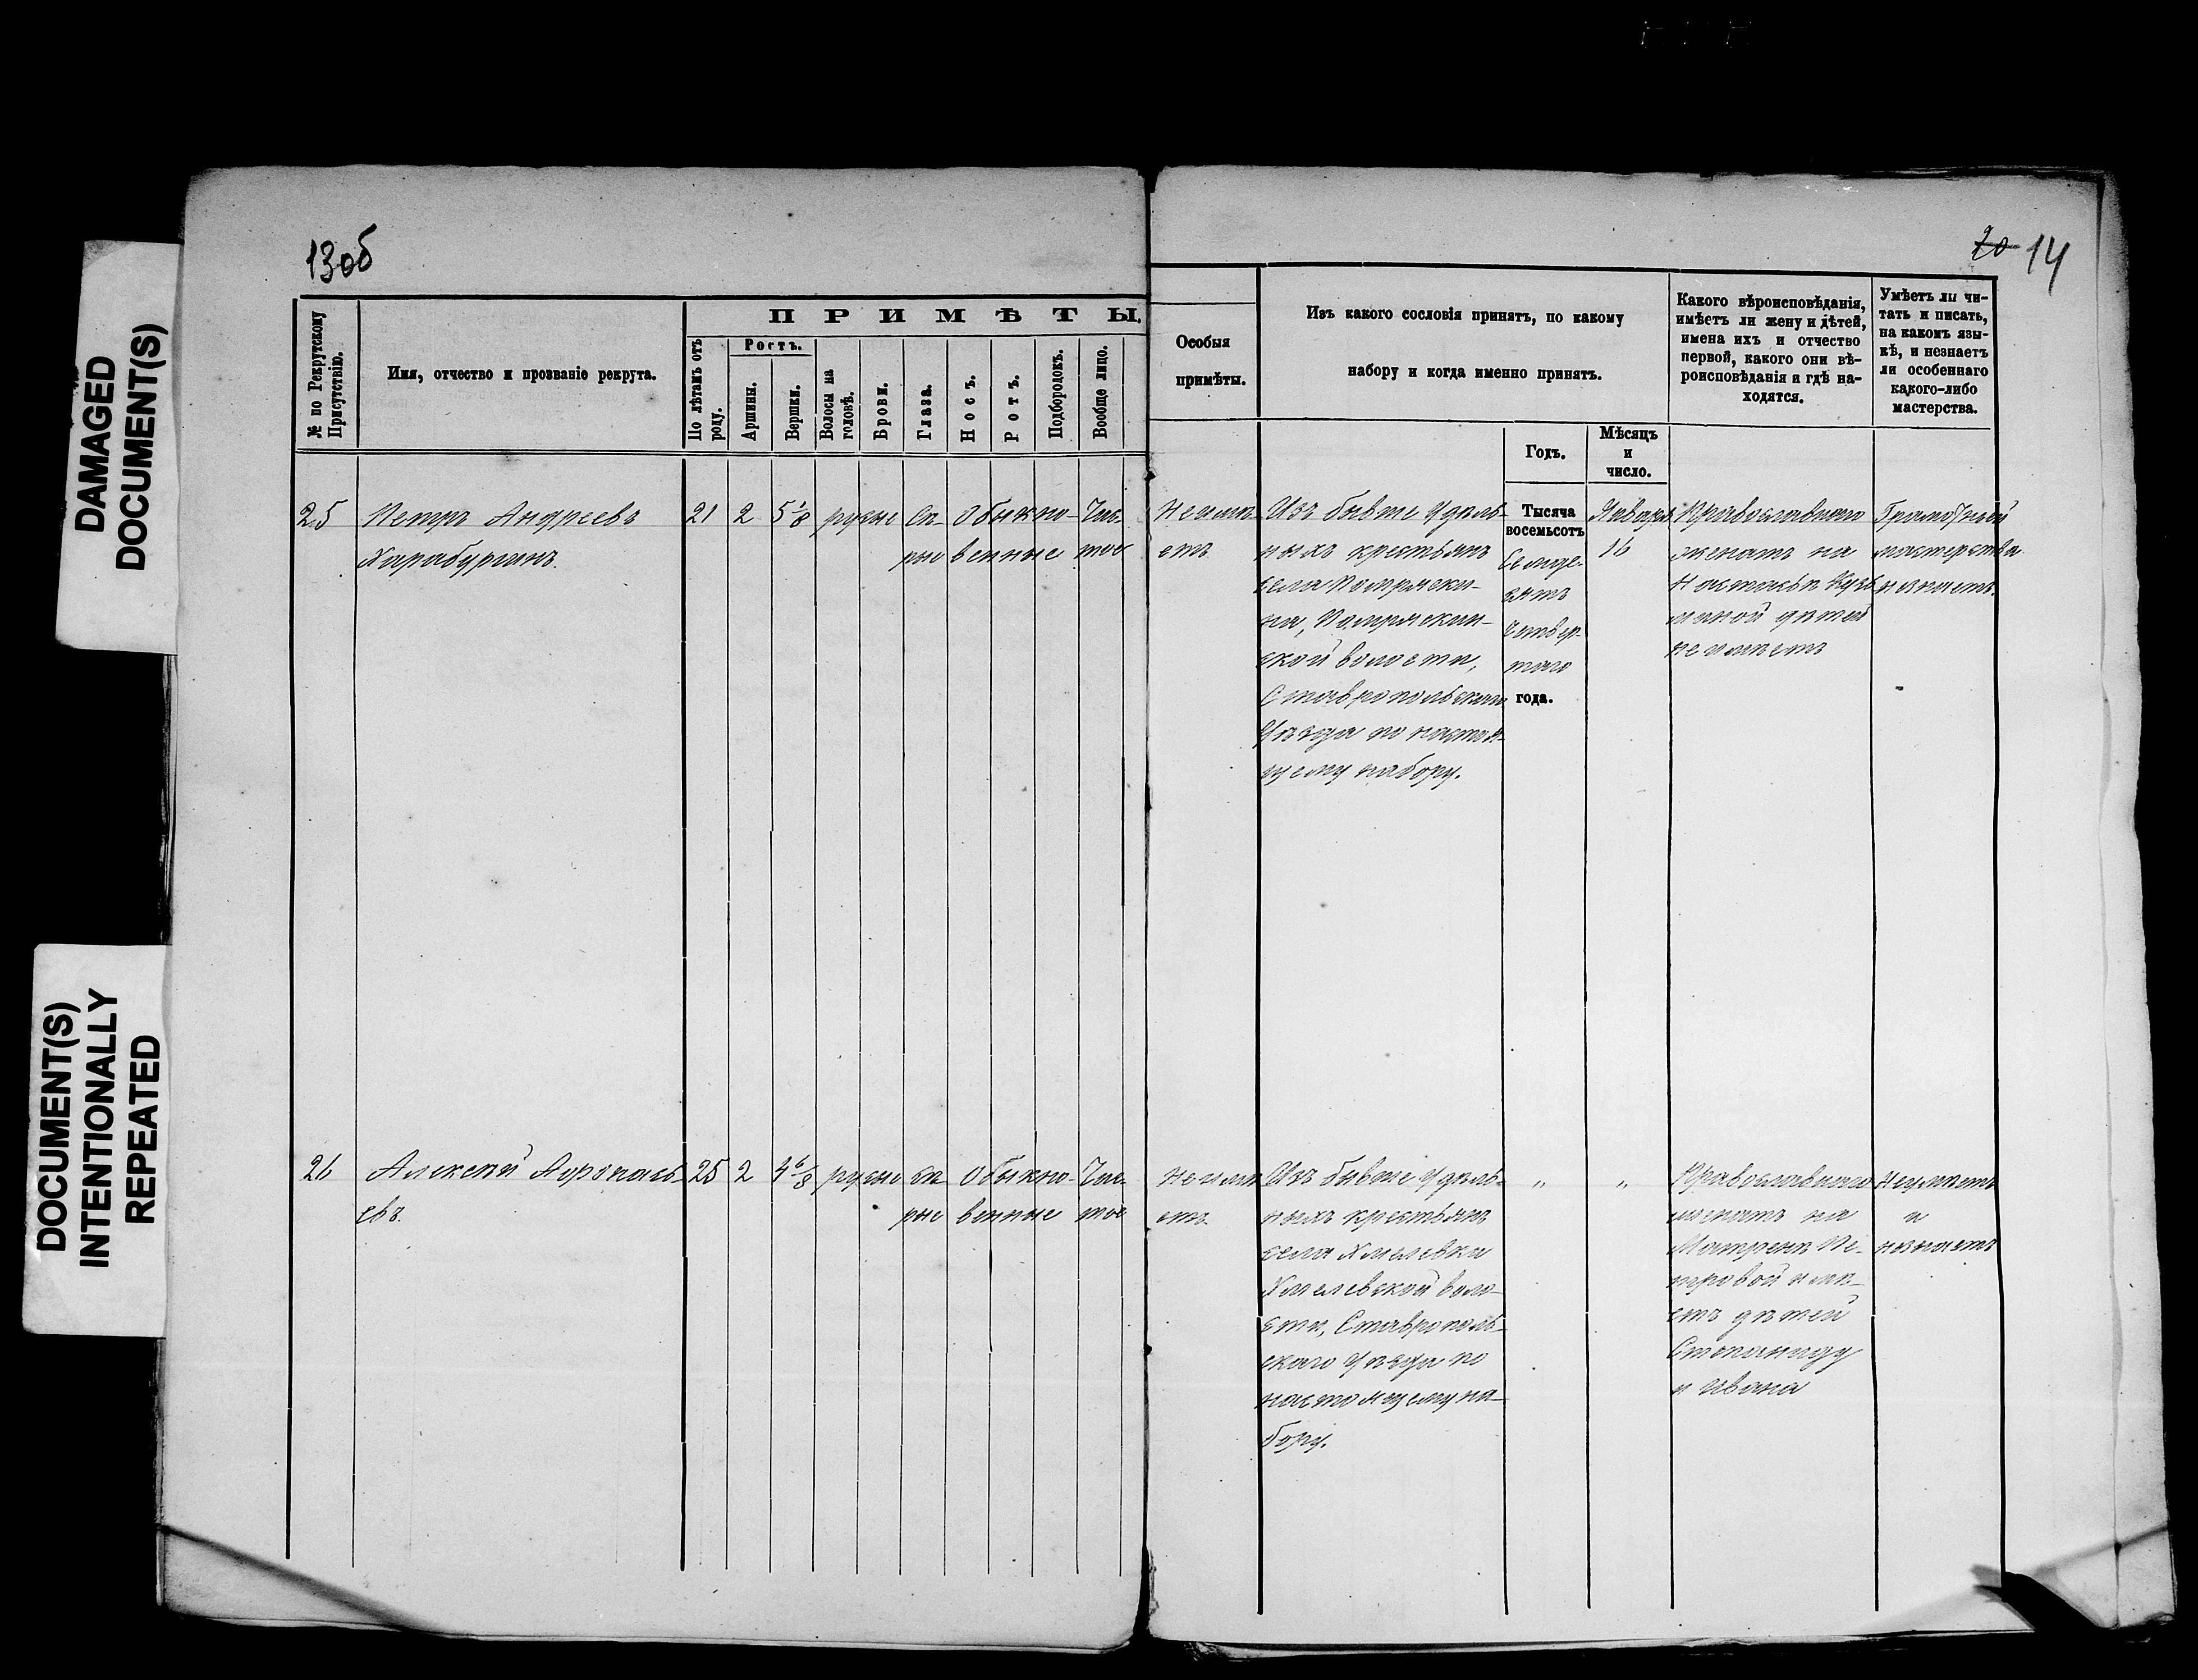 DAMAGED
DOCUMENT(S)
DOCUMENT(S)
INTENTIONALLY
REPEATED
13об
20 14
№ по Рекрутскому
Присутствію.
Имя, отчество и прозваніе рекрута.
ПРИМѢТЫ.
По лѣтамъ отъ
роду.
Ростъ.
Аршины.
Вершки.
Волосы на
головѣ.
Брови.
Глаза.
Носъ.
Ротъ.
Подбородокъ.
Вообще лицо.
Особыя
примѣты.
Изъ какого сословія принятъ, по какому
набору и когда именно принятъ.
Годъ.
Мѣсяцъ
и
число.
Какого вѣроисповѣданія,
имѣетъ ли жену и дѣтей,
имена ихъ и отчество
первой, какого они вѣ-
роисповѣданія и гдѣ на-
ходятся.
Умѣетъ ли чи-
тать и писать,
на какомъ язы-
кѣ, и незнаетъ
ли особеннаго
какого-либо
мастерства.
25
Петръ Андреевъ
21 2 5 1/8 русые Сѣ- Обыкно- Чис-
рые венные тое
Неимѣ-
етъ
Изъ бывше Удѣль-
ныхъ крестьянъ
села Помряски-
на, Помряскин-
ской волости,
Ставропольскаго
Уѣзда по настоя-
щему набору.
Тысяча
восемьсотъ
Семьде-
сятъ
Четвер-
таго
года.
Января
16
Православнаго
женатъ на
Настасьѣ Кузь-
миной дѣтей
неимѣетъ
Грамотный
мастерства
незнаетъ.
26
Алексѣй Афонась-
евъ.
25 2 4 6/8 русые сѣ- Обыкно- Чис-
рые венные тое
Неимѣ-
етъ.
Изъ бывше Удѣль-
ныхъ крестьянъ
села Хмелевки
Хмелевской воло-
сти, Ставрополь-
скаго Уѣзда по
настоящему на-
бору.
„ „
Православнаго
женатъ на
Матренѣ Пе-
тровой имѣ-
етъ дѣтей
Степаниду
и Ивана
Неумѣетъ
и
незнаетъ